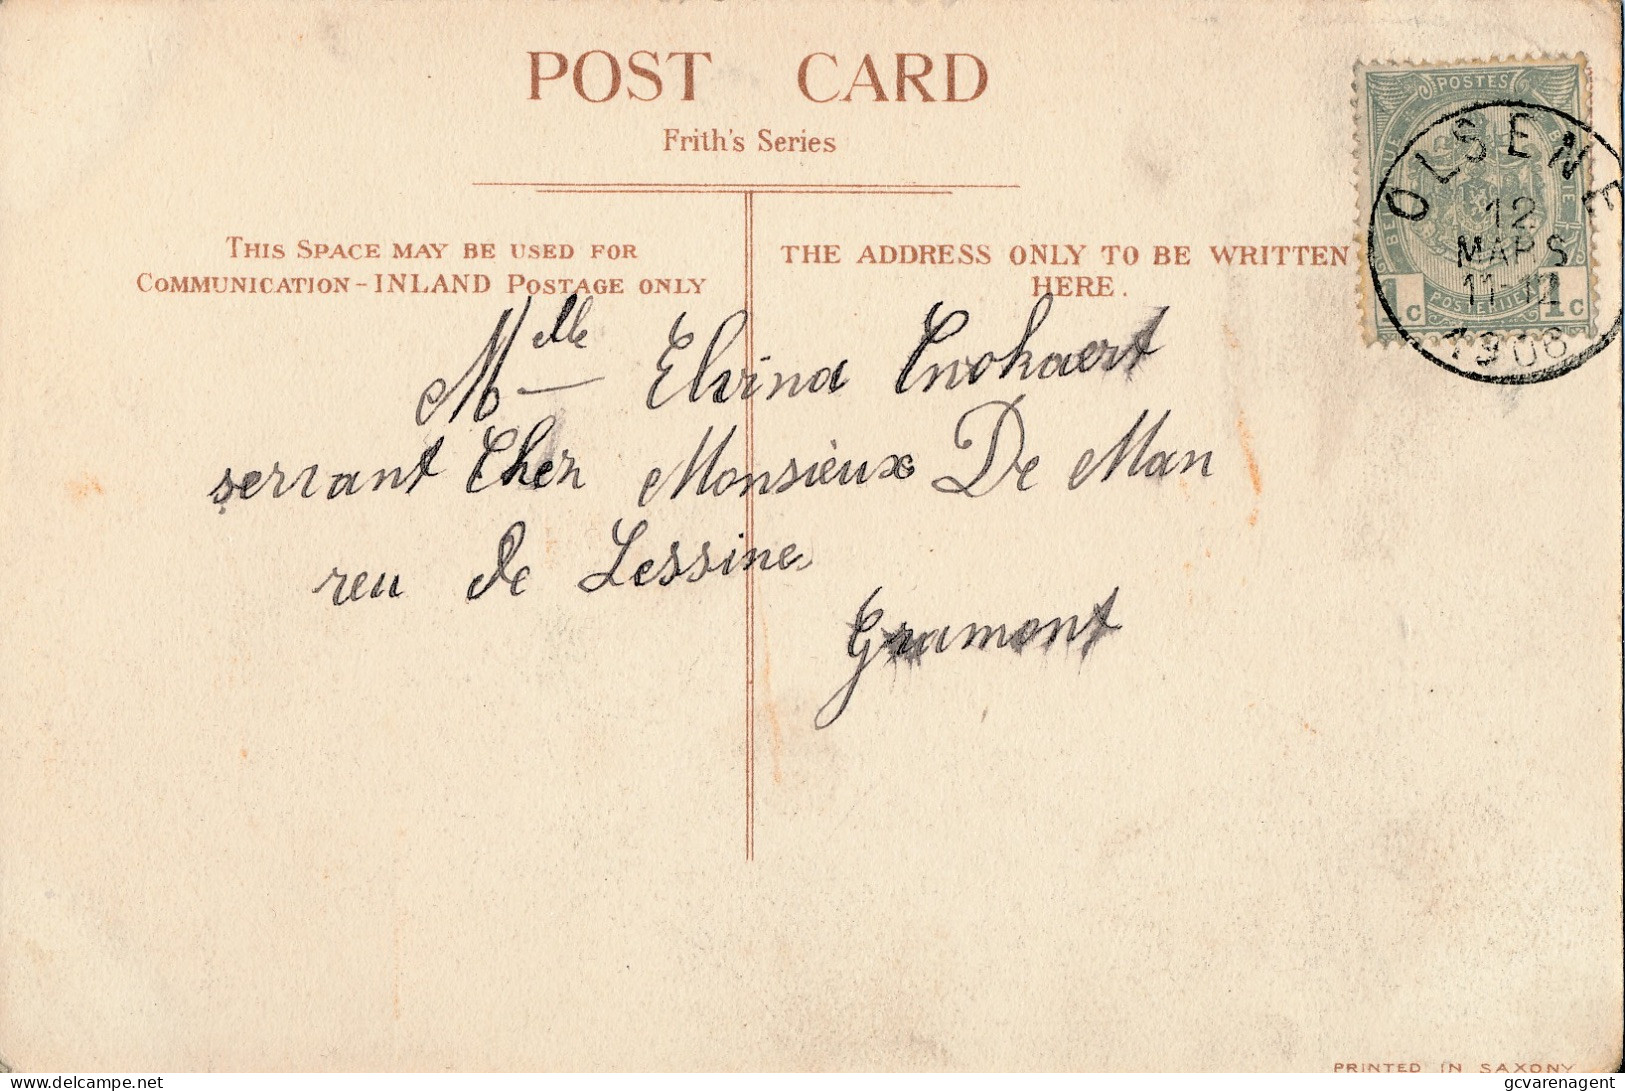 POST CARD
Frith's Series
THIS SPACE MAY BE USED FOR
COMMUNICATION - INLAND POSTAGE ONLY
THE ADDRESS ONLY TO BE WRITTEN
HERE.
POSTES
BELGIQUE BELGIE
POSTERIJEN
1c 1c
OLSENE
12
MARS
11-12
1908
Mlle Elvina
servant Cher Monsieux De Man
reu de Lessine
Gramont
PRINTED IN SAXONY
delcampe.net
gcvarenagent